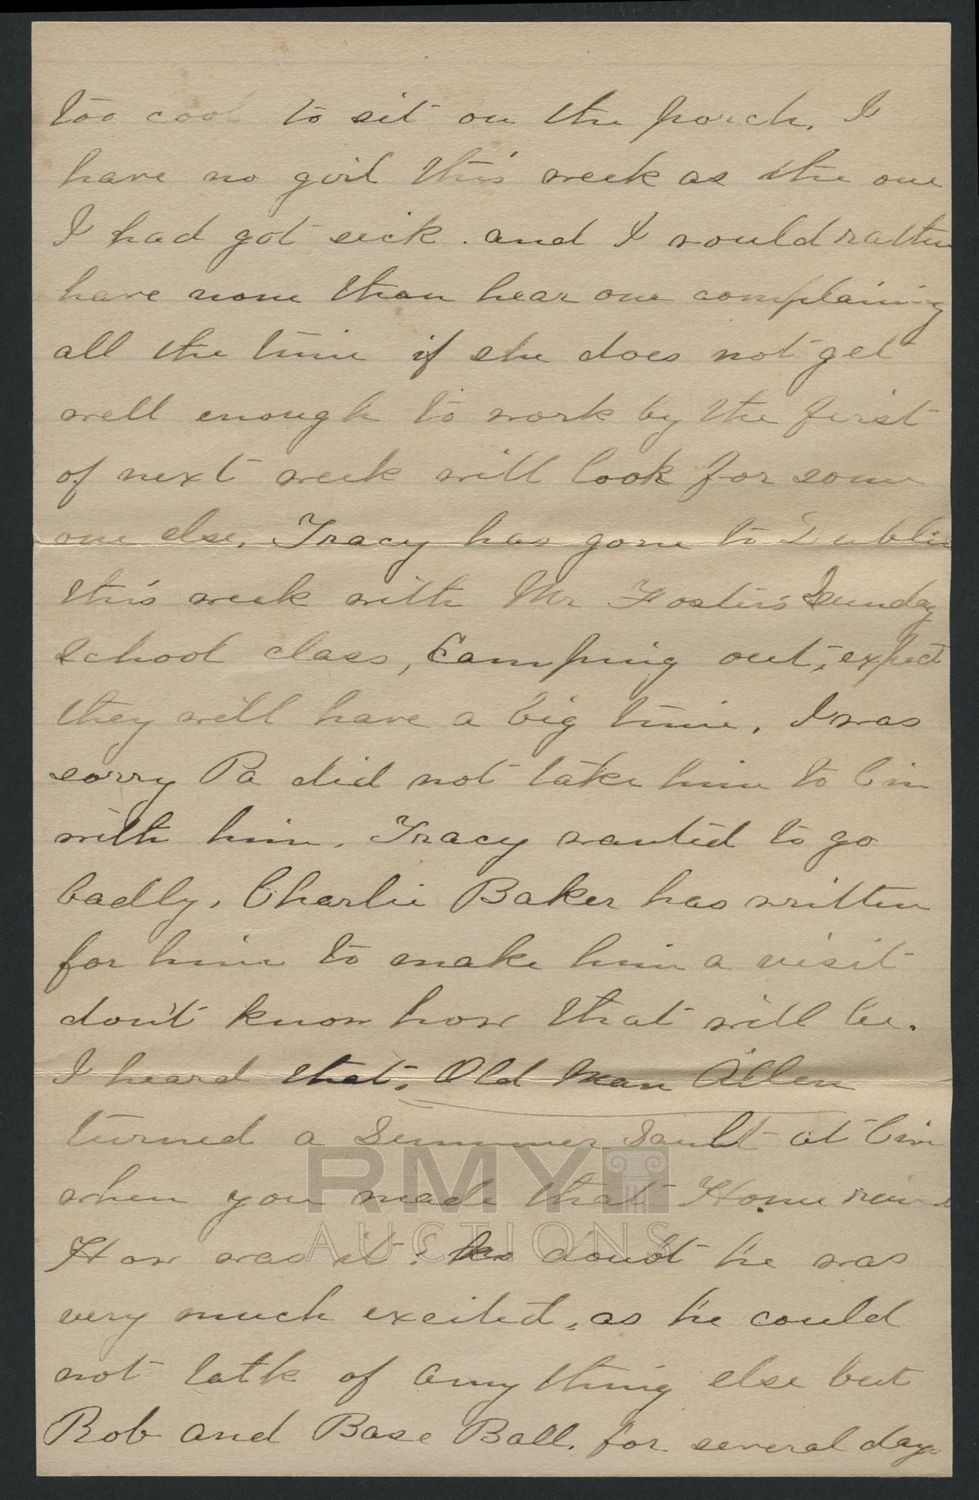 too cool to sit on the porch. I
have no girl this week as the one
I had got sick. and I would rather
have none than hear one complaining
all the time if she does not get
well enough to work by the first
of next week will look for some
one else. Tracy has gone to Dublin
this week with Mr Foster's Sunday
School class, Camping out, expect
they will have a big time. I was
sorry Pa did not take him to Cin
with him. Tracy wanted to go
badly. Charlie Baker has written
for him to make him a visit
don't know how that will be.
I heard that, Old Man Allen
turned a Summer Sault at Cin
when you made that Home run
How was it? No doubt he was
very much excited, as he could
not talk of any thing else but
Rob and Base Ball. for several days
RMY
AUCTIONS